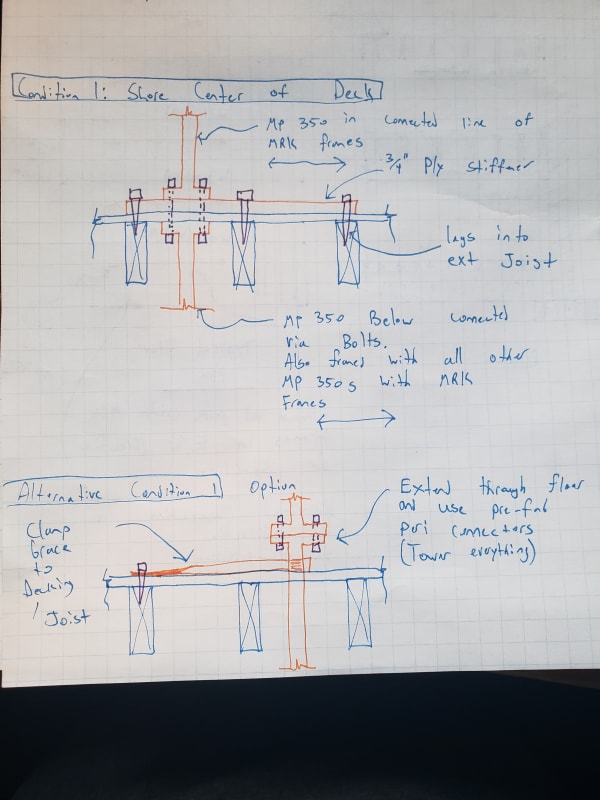 Condition 1: Shore Center of Deck
MP 350 in connected line of
MRK frames
3/4" Ply stiffener
lags into
ext Joist
MP 350 Below connected
via Bolts.
Also framed with all other
MP 350s with MRK
Frames
Alternative Condition 1 Option
Clamp
Brace
to
Decking
/ Joist
Extend through floor
and use pre-fab
Peri connectors
(Tower everything)